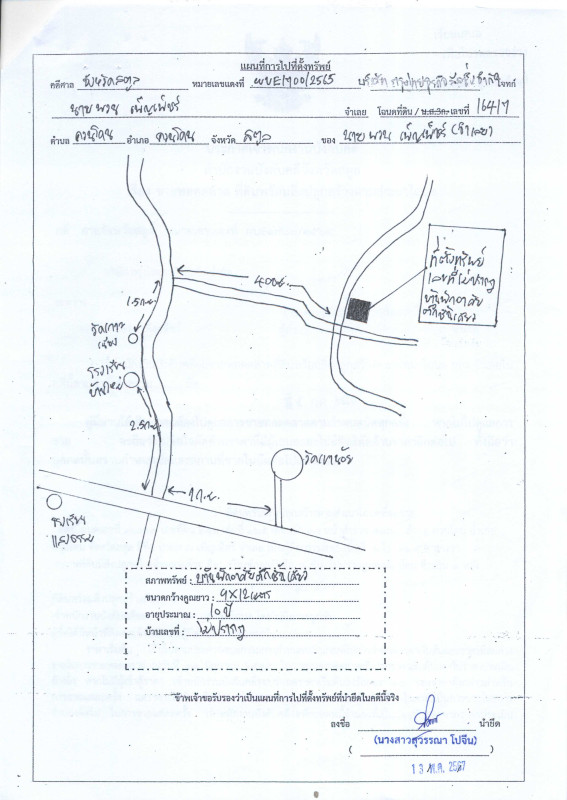 แผนที่การไปที่ตั้งทรัพย์
คดีศาล จังหวัดสตูล หมายเลขแดงที่ ผบE1700/2565 บริษัท กรุงไทยธุรกิจลีสซิ่ง จำกัด โจทก์
นายพวน เพ็ญเพ็ชร์ จำเลย โฉนดที่ดิน / น.ส.3ก. เลขที่ 16417
ตำบล ควนโดน อำเภอ ควนโดน จังหวัด สตูล ของ นายพวน เพ็ญเพ็ชร์ (จำเลย)
ที่ตั้งทรัพย์
เลขที่ไม่ปรากฏ
บ้านพักอาศัย
ตึกชั้นเดียว
400ม.
1.5กม.
โรงเรียน
บ้านใหม่
2.5กม.
วัดเขาน้อย
1กม.
โรงเรียน
สภาพทรัพย์ : บ้านพักอาศัยตึกชั้นเดียว
ขนาดกว้างคูณยาว : 9X12เมตร
อายุประมาณ : 10 ปี
บ้านเลขที่ : ไม่ปรากฏ
ข้าพเจ้าขอรับรองว่าเป็นแผนที่การไปที่ตั้งทรัพย์ที่นำยึดในคดีนี้จริง
ลงชื่อ นำยึด
(นางสาวสุวรรณา โปจีน)
( )
13 พ.ค. 2567